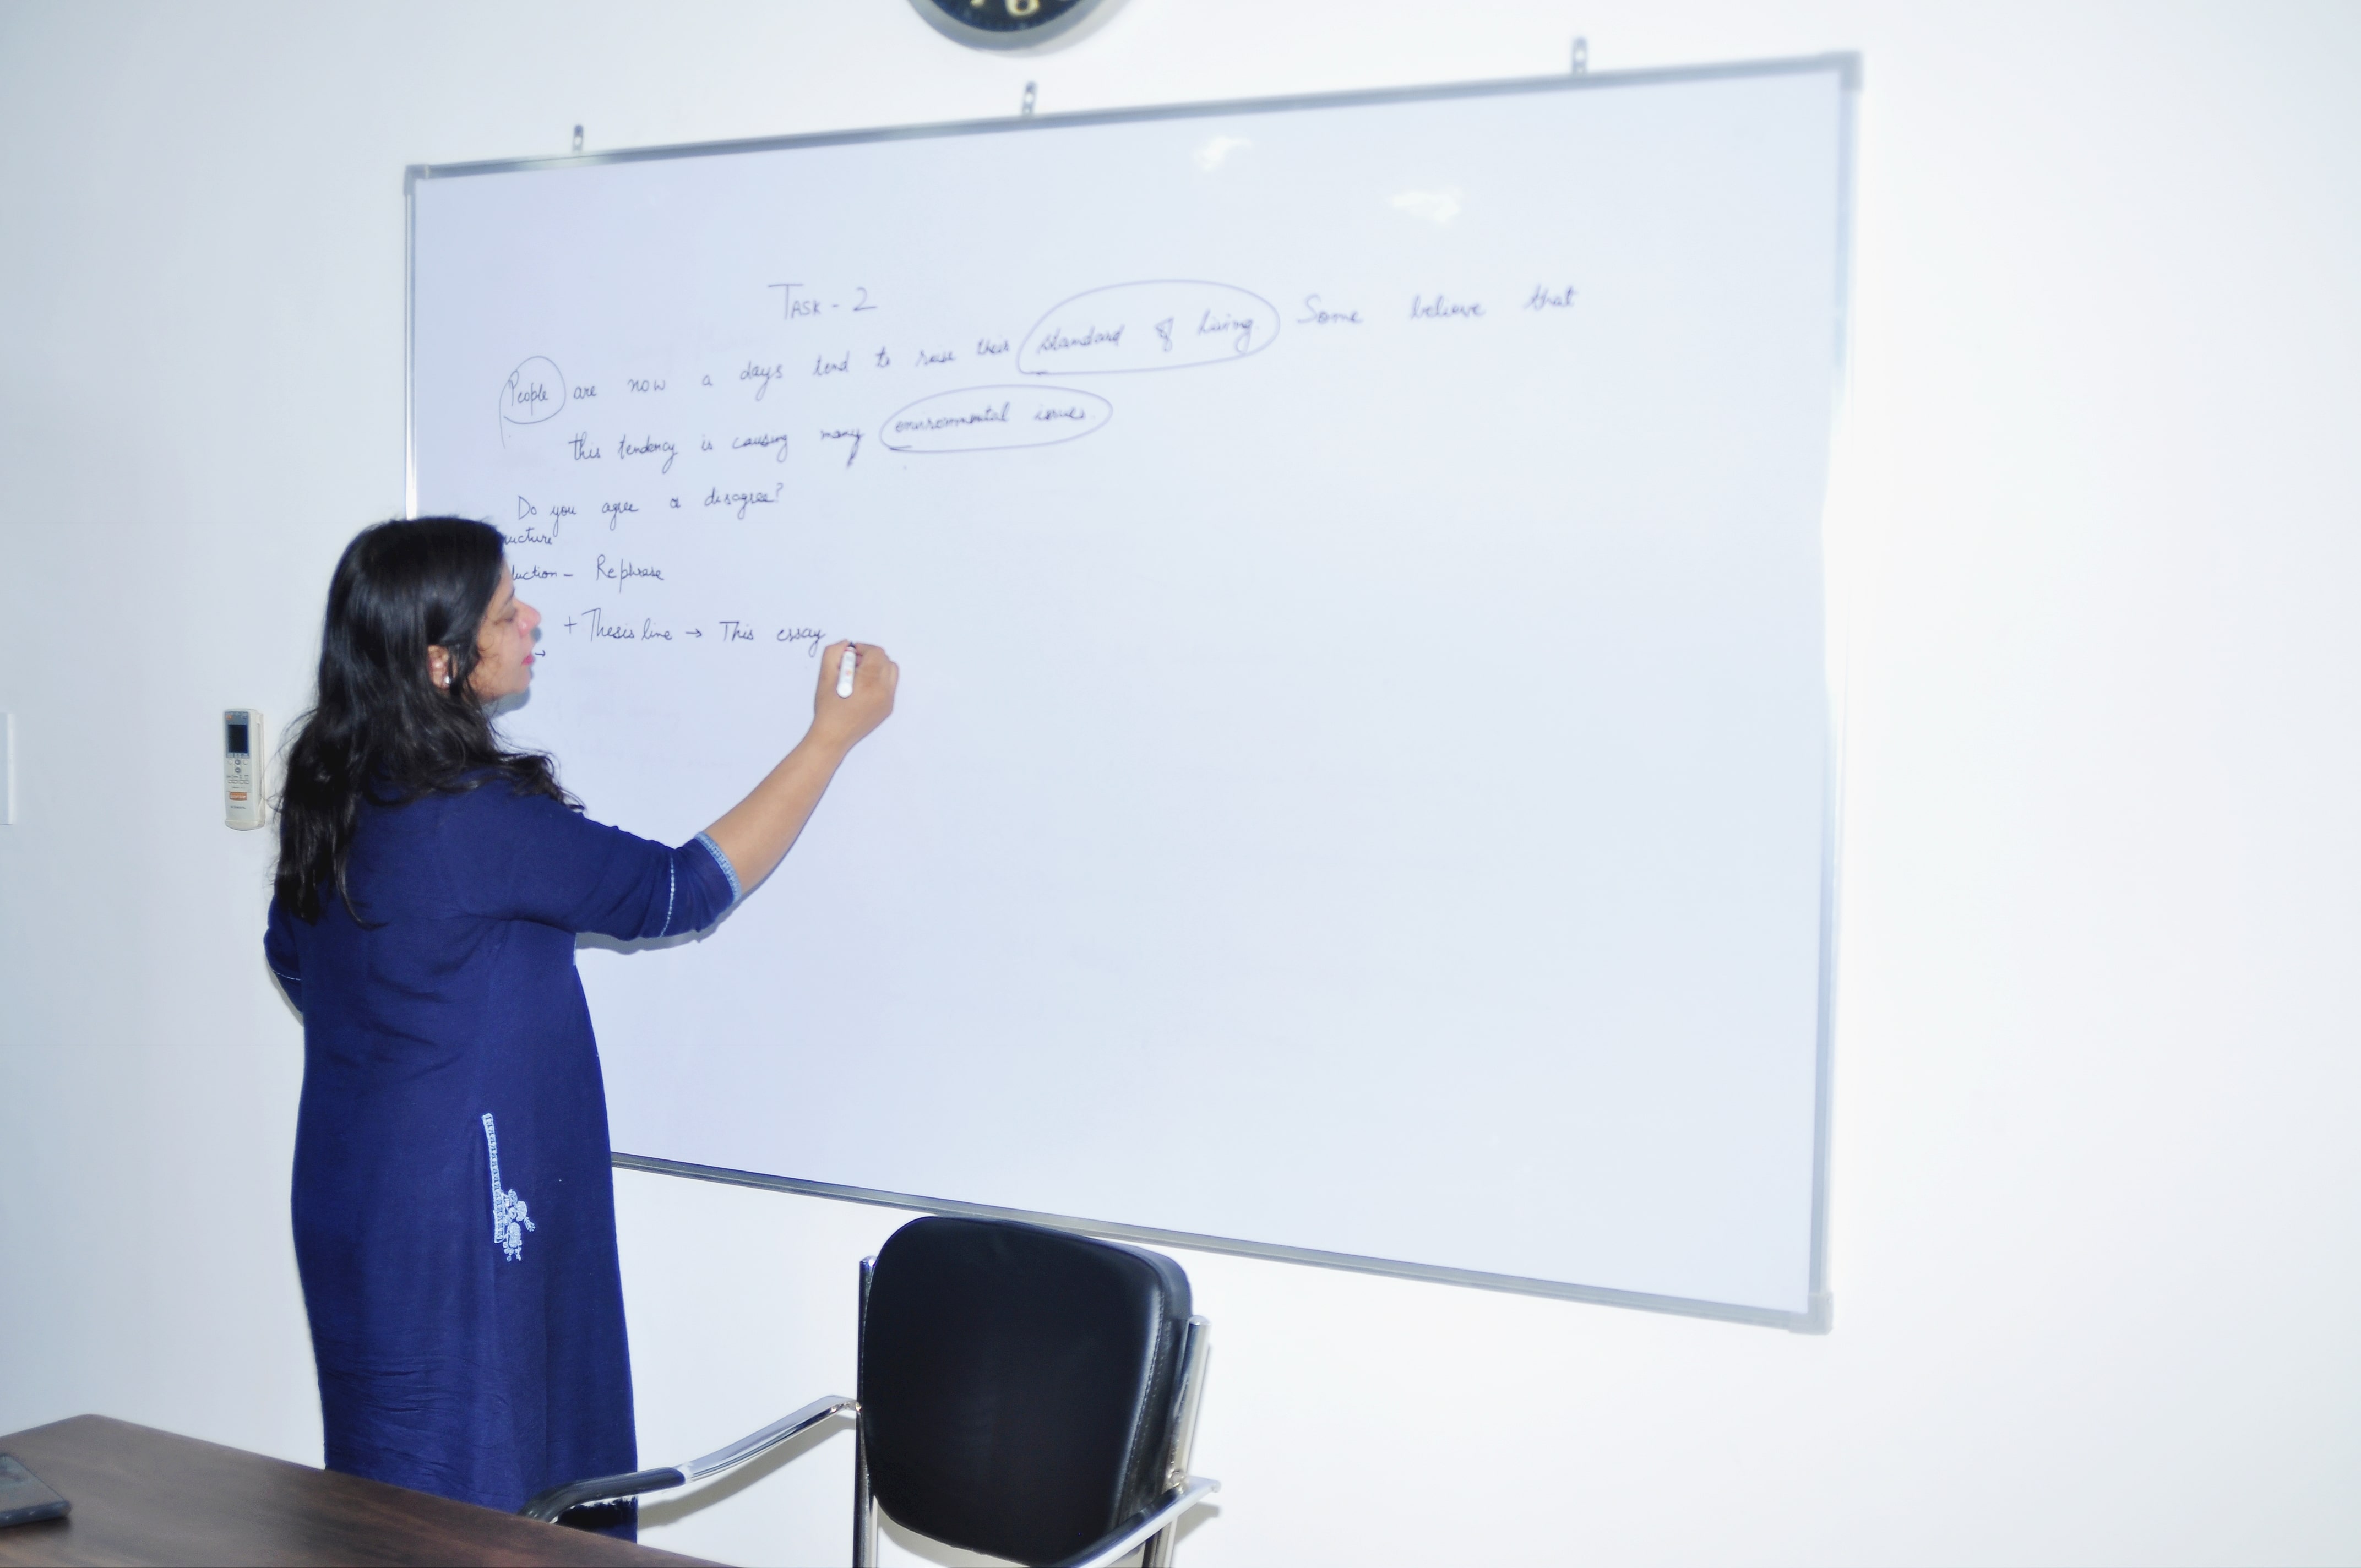 6
TASK - 2
People are now a days tend to raise their standard of living. Some believe that
this tendency is causing many environmental issues.
Do you agree or disagree?
ucture
duction - Rephrase
+ Thesis line → This essay
→